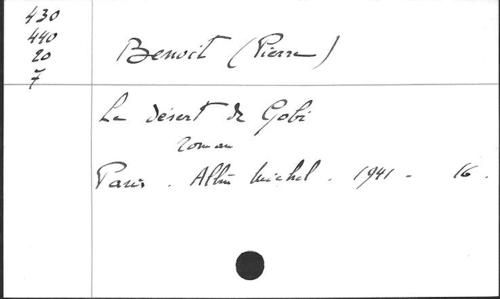 430
440
20
7
Benoit (Pierre)
Le désert de Gobi
roman
Paris. Albin Michel. 1941 - 16